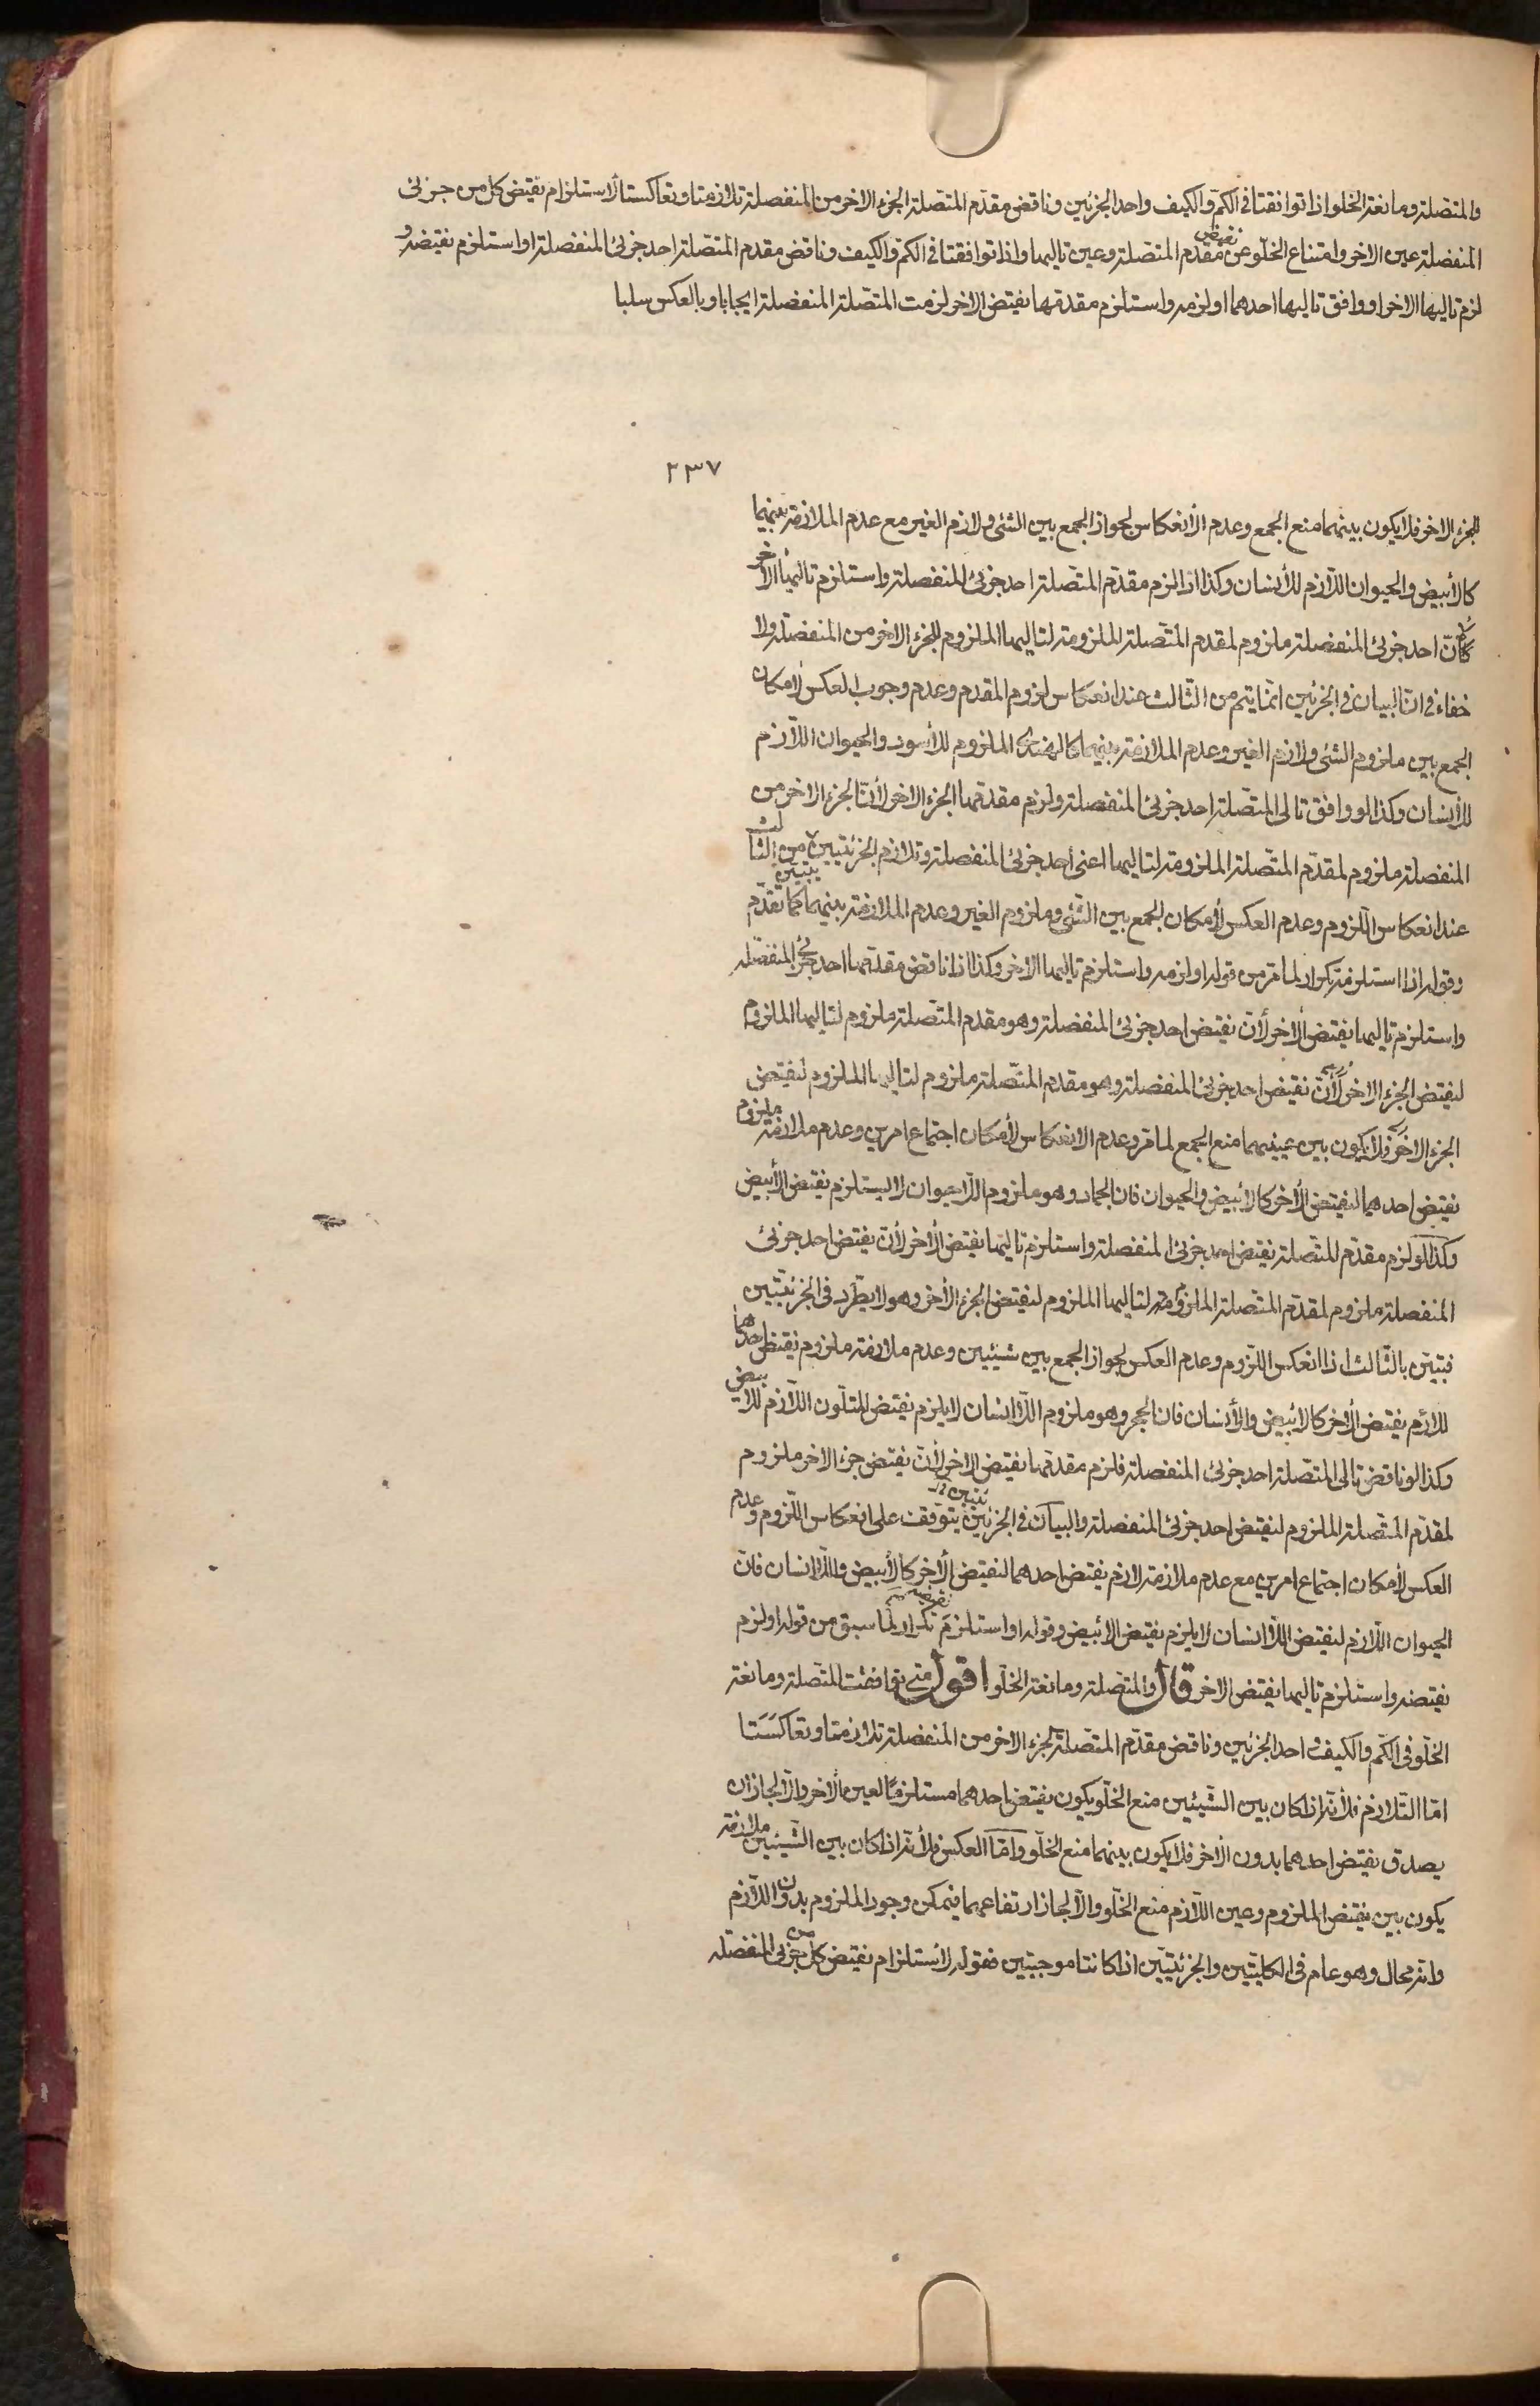 والمتصلة ومانعة الخلو اذا توافقتا فى الكمّ والكيف واحد الجزئين وناقض مقدّم المتصلة الجزء الاخر من المنفصلة تلازمتا وتعاكستا لاستلزام نقيض كل من جزئى
المنفصلة عين الاخر وامتناع الخلّو عن نقيض مقدّم المتصلة وعين تاليها واذا توافقتا فى الكمّ والكيف وناقض مقدم المتصلة احد جزئى المنفصلة او استلزم نقيضه و
لزم تاليها الاخر او وافق تاليها احدهما او لزمه واستلزم مقدمها نقيض الاخر لزمت المتصلة المنفصلة ايجابا وبالعكس سلبا
٢٣٧
للجزء الاخر فلا يكون بينهما منع الجمع وعدم الأنعكاس لجواز الجمع بين الشئ ولازم الغير مع عدم الملازمة بينهما
كالأبيض والحيوان اللّازم للأنسان وكذا اذا لزم مقدّم المتّصلة احد جزئى المنفصلة واستلزم تاليها الأخر
لأنّ احد جزئى المنفصلة ملزوم لمقدم المتّصلة الملزومة لتاليها الملزوم للجزء الاخر من المنفصلة ولا
خفاء فى انّ البيان فى الجزئين انّما يتم من الثّالث عند انعكاس لزوم المقدم وعدم وجوب العكس لأمكان
الجمع بين ملزوم الشئ ولازم الغير وعدم الملازمة بينهما الملزوم للأسود والحيوان اللّازم
للأنسان وكذا لو وافق تالى المتّصلة احد جزئى المنفصلة ولزم مقدمها الجزء الاخر لأنّ الجزء الاخر من
المنفصلة ملزوم لمقدّم المتصلة الملزومة لتاليها اعنى احد جزئى المنفصلة وتلازم الجزئيتين يتبيّن من الثالث
عند انعكاس اللّزوم وعدم العكس لأمكان الجمع بين الشئ وملزوم الغير وعدم الملازمة بينهما كما تقدّم
وقوله اذا استلزمته تكرار لما مرّ من قوله او لزمه واستلزم تاليها الاخر وكذا اذا ناقض مقدمها احد جزئى المنفصله
واستلزم تاليها نقيض الأخر لأنّ نقيض احد جزئى المنفصلة وهو مقدم المتّصلة ملزوم لتاليها الملزوم
لنقيض الجزء الاخر لأنّ نقيض احد جزئى المنفصلة وهو مقدم المتّصلة ملزوم لتاليها الملزوم لنقيض
الجزء الاخر فلا يكون بين عينيهما منع الجمع لما مرّ وعدم الانعكاس لأمكان اجتماع امرين وعدم ملازمة ملزوم
نقيض احدهما لنقيض الأخر كالأبيض والحيوان فان الجماد وهو ملزوم اللّاحيوان لا يستلزم نقيض الأبيض
وكذا لو لزم مقدّم المتّصلة نقيض احد جزئى المنفصلة واستلزم تاليها نقيض الأخر لأنّ نقيض احد جزئى
المنفصلة ملزوم لمقدّم المتّصلة الملزومة لتاليها الملزوم لنقيض الجزء الأخر وهو لا يطّرد فى الجزئيّتين
فتبيّن بالثّالث اذا انعكس اللّزوم وعدم العكس لجواز الجمع بين شيئين وعدم ملازمة ملزوم نقيض احدهما
للازم نقيض الأخر كالأبيض والأنسان فان الحجر وهو ملزوم اللّاانسان لا يلزم نقيض المتلّون اللّازم للابيض
وكذا لو ناقض تالى المتّصلة احد جزئى المنفصلة فلزم مقدمها نقيض الاخر لأنّ نقيض جزء الاخر ملزوم
لمقدّم المتّصلة الملزوم لنقيض احد جزئى المنفصلة والبيان فى الجزئيتين يتوقّف على انعكاس اللّزوم وعدم
العكس لأمكان اجتماع امرين مع عدم ملازمة لازم نقيض احدهما لنقيض الأخر كالأبيض واللّاانسان فانّ
الحيوان اللّازم لنقيض اللّاانسان لا يلزم نقيض الابيض وقوله او استلزم نقيضه تكرار لما سبق من قوله او لزم
نقيضه واستلزم تاليها نقيض الاخر قال والمتصلة ومانعة الخلّو اقول متى توافقت المتّصلة ومانعة
الخلّو فى الكّم والكيف واحد الجزئين وناقض مقدّم المتّصلة لجزء الاخر من المنفصلة تلازمتا وتعاكستا
امّا التّلازم فلأنّه اذا كان بين الشّيئين منع الخلّو يكون نقيض احدهما مستلزمًا لعين الأخر والّا لجاز ان
يصدق نقيض احدهما بدون الأخر فلا يكون بينهما منع الخلّو وامّا العكس فلأنّه اذا كان بين الشّيئين ملازمة
يكون بين نقيض الملزوم وعين اللّازم منع الخلّو والّا لجاز ارتفاعهما فيمكن وجود الملزوم بدون اللّازم
وانه محال وهو عام فى الكليتين والجزئيتين اذا كانتا موجبتين فقوله لأستلزام نقيض كل من جزئى المنفصله